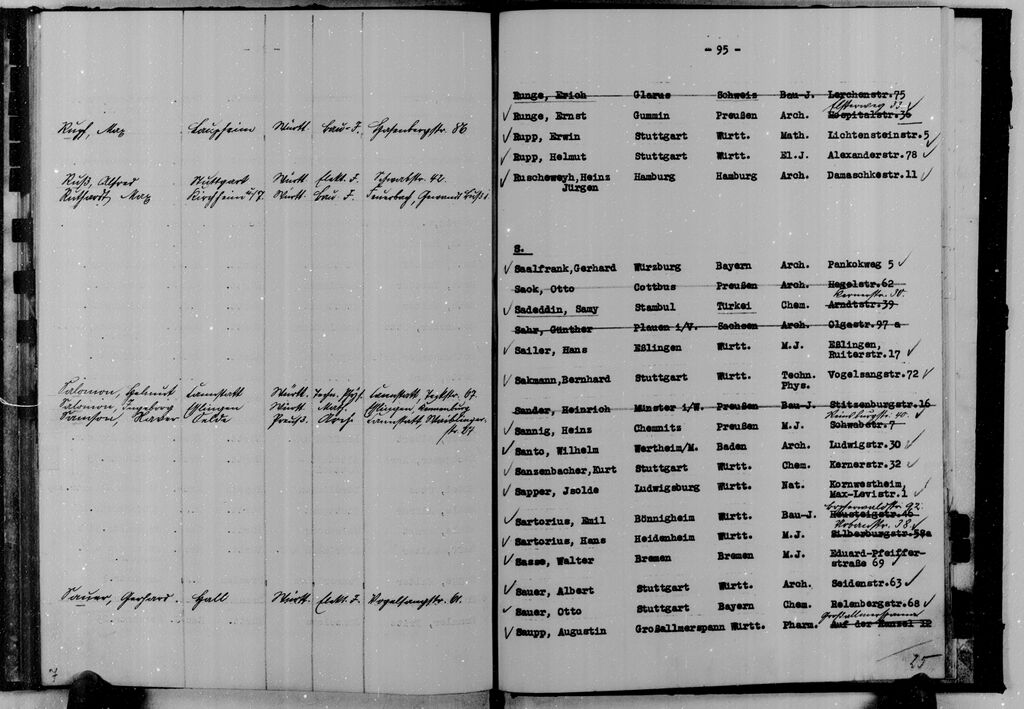 Rupf, Max Laupheim Württ. Bau-J. Hasenbergstr. 86
Ruß, Alfred Stuttgart Württ Elekt. J. Schwabstr. 42.
Ruthardt Max Kirchheim u/T. Württ. Bau-J. Feuerbach,
Salomon, Helmut Cannstatt Württ. Techn. Phys. Cannstatt, 67
Salomon, Ingeborg Eßlingen Württ Math. Eßlingen,
Samson, Xaver Oelde Preuß. Arch. Cannstatt,
str. 27
Sauer, Gerhard. Hall Württ. Elekt. J. Vogelsangstr. 61.
7
- 95 -
Runge, Erich Glarus Schweiz Bau-J. Lerchenstr.75
33
Runge, Ernst Gummin Preußen Arch. Hospitalstr.36
Rupp, Erwin Stuttgart Württ. Math. Lichtensteinstr.5
Rupp, Helmut Stuttgart Württ. El.J. Alexanderstr.78
Ruscheweyh,Heinz Hamburg Hamburg Arch. Damaschkestr.11
Jürgen
S.
Saalfrank,Gerhard Würzburg Bayern Arch. Pankokweg 5
Sack, Otto Cottbus Preußen Arch. Hegelstr.62
Kernerstr. 30.
Sadeddin, Samy Stambul Türkei Chem. Arndtstr.39
Sahr, Günther Plauen i/V. Sachsen Arch. Olgastr.97 a
Sailer, Hans Eßlingen Württ. M.J. Eßlingen,
Ruiterstr.17
Sakmann,Bernhard Stuttgart Württ. Techn. Vogelsangstr.72
Phys.
Sander, Heinrich Münster i/W. Preußen Bau-J. Stitzenburgstr.16
Reinsburgstr. 40.
Sannig, Heinz Chemnitz Preußen M.J. Schwabstr.7
Santo, Wilhelm Wertheim/M. Baden Arch. Ludwigstr.30
Sanzenbacher,Kurt Stuttgart Württ. Chem. Kernerstr.32
Sapper, Jsolde Ludwigsburg Württ. Nat. Kornwestheim,
Max-Levistr.1
Botnerwaldstr. 92.
Sartorius, Emil Bönnigheim Württ. Bau-J. Heusteigstr.46
Urbanstr. 38
Sartorius, Hans Heidenheim Württ. M.J. Silberburgstr.58a
Sasse, Walter Bremen Bremen M.J. Eduard-Pfeiffer-
straße 69
Sauer, Albert Stuttgart Württ. Arch. Seidenstr.63
Sauer, Otto Stuttgart Bayern Chem. Relenbergstr.68
Großallmerspann
Saupp, Augustin Großallmerspann Württ. Pharm. Auf der Kanzel 12
25